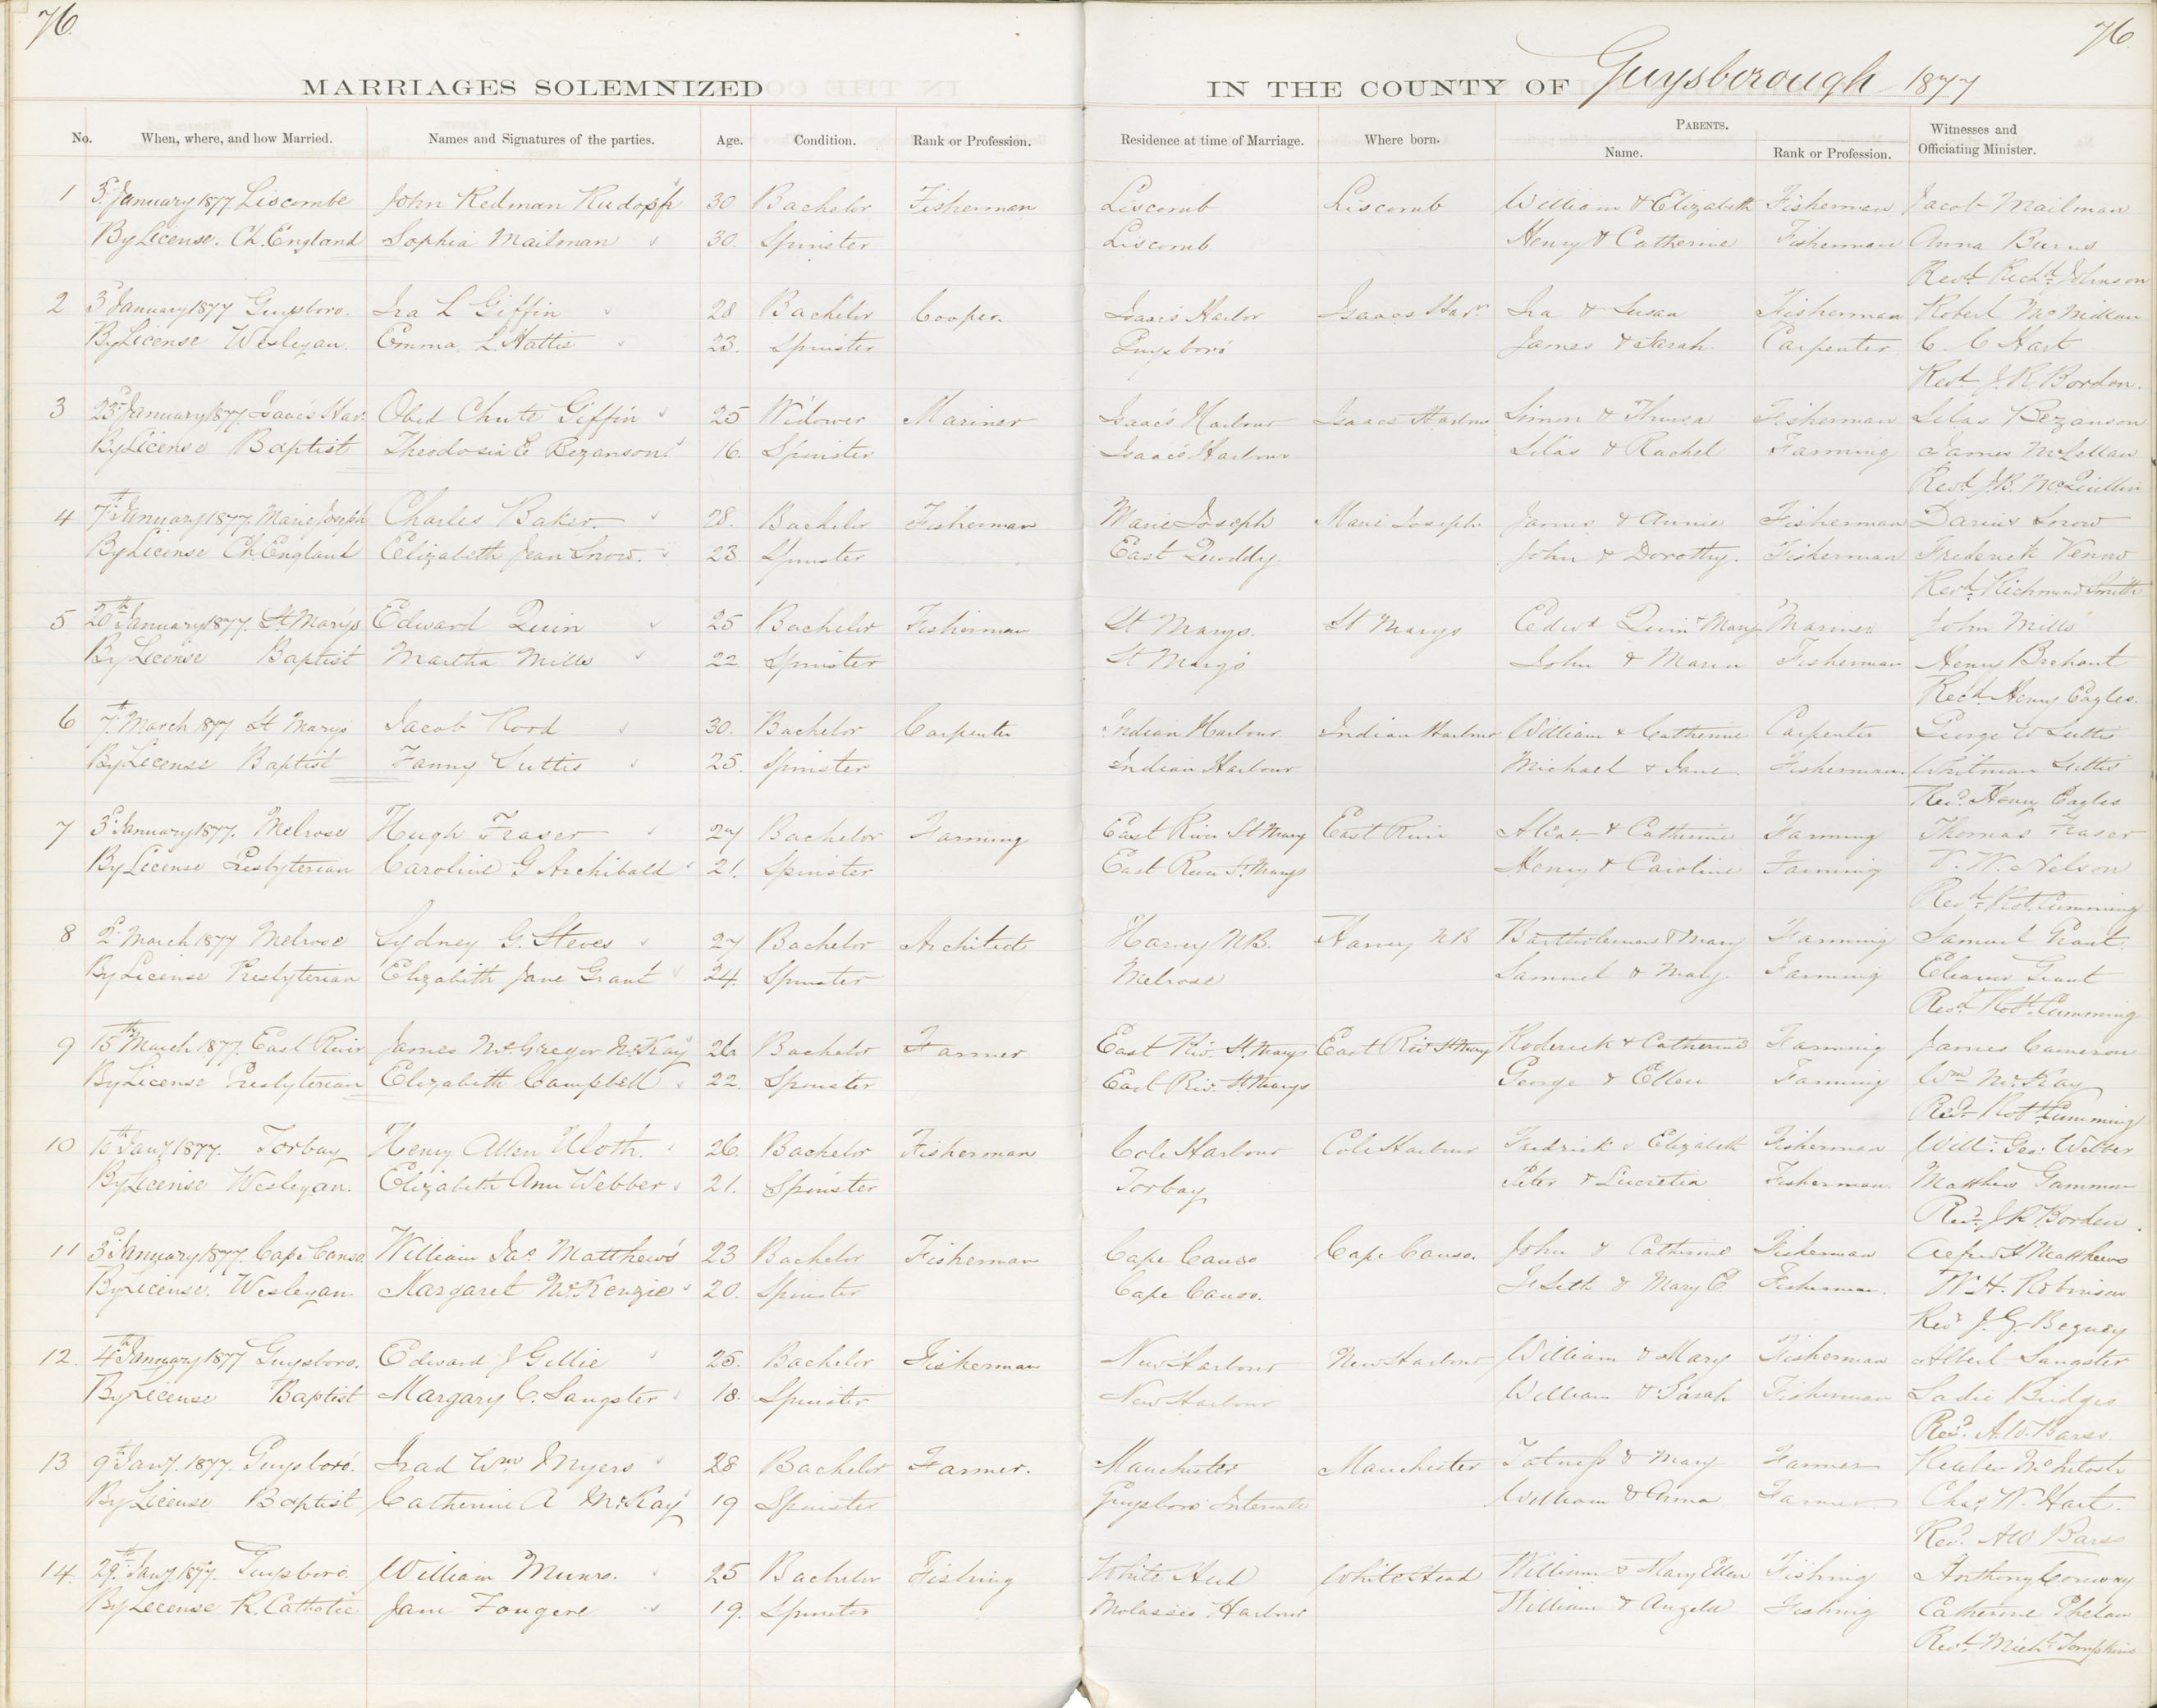 76.
76.
MARRIAGES SOLEMNIZED IN THE COUNTY OF Guysborough 1877
No. When, where, and how Married. Names and Signatures of the parties. Age. Condition. Rank or Profession. Residence at time of Marriage. Where born. PARENTS. Name. Rank or Profession. Witnesses and Officiating Minister.
1 3d January 1877 Liscombe John Redman Rudolph 30 Bachelor Fisherman Liscomb Liscomb William & Elizabeth Fisherman Jacob Mailman
By License. Ch. England Sophia Mailman 30. Spinster Liscomb Henry & Catherine Fisherman Anna Burns
Revd. Richd. Johnson
2 3d January 1877 Guysboro. Ira L Giffin 28 Bachelor Cooper. Isaac's Harbor Isaacs Harr. Ira & Susan Fisherman Robert McMillan
By License Wesleyan. Emma L. Hattie 23. Spinster Guysboro' James & Sarah. Carpenter C C Hart
Revd. J. R. Borden.
3 23d January 1877. Isaac's Har. Obed Chute Giffin 25 Widower Mariner Isaac's Harbour Isaacs Harbour Simon & Fisherman Silas Bezanson
By License Baptist Theodosia E Bezanson 16. Spinster Isaac's Harbour Silas & Rachel Farming James McLellan
Revd. J. B. McQuillin
4 7th January 1877. Marie Joseph Charles Baker. 28. Bachelor Fisherman Marie Joseph Marie Joseph James & Annie Fisherman Darius Snow
By License Ch England Elizabeth Jean Snow. 23. Spinster East Quoddy. John & Dorothy. Fisherman Frederick
Revd. Richmond Smith
5 20th January 1877. St. Mary's Edward Quin 25 Bachelor Fisherman St Marys. St Marys Edwd Quin & Mary Mariner John Mills
By License Baptist Martha Mills 22 Spinster St Mary's John & Maria Fisherman Henry Brehaut
Revd. Henry Eagles.
6 7th March 1877 St Marys Jacob Rood 30. Bachelor Carpenter Indian Harbour Indian Harbour William & Catherine Carpenter George W Suttis
By License Baptist Fanny Suttis 25. Spinster Indian Harbour Michael & Jane Fisherman. Whitman Suttis
Revd. Henry Eagles
7 3d January 1877. Melrose Hugh Fraser 27 Bachelor Farming East River St Mary East River Alexr & Catherine Farming Thomas Fraser
By License Presbyterian Caroline G Archibald 21. Spinster East River St. Marys Henry & Caroline Farming W. Nelson
Revd. Robt. Cumming
8 2d March 1877 Melrose Sydney G. Steves 27 Bachelor Architect Harvey N.B. Harvey N B Bartholemew & Mary Farming Samuel Grant.
By License Presbyterian Elizabeth Jane Grant 24. Spinster Melrose Samuel & Mary Farming Eleanor Grant
Revd. Robt. Cumming
9 15th March 1877. East River James McGregor McKay 26 Bachelor Farmer East Riv. St. Marys East Riv St Mary Roderick & Catherine Farming James Cameron
By License Presbyterian Elizabeth Campbell 22. Spinster East Riv. St. Marys George & Ellen Farming Wm McKay
Revd. Robt. Cumming
10 10th Jany 1877. Torbay Henry Allen Uloth. 26. Bachelor Fisherman Cole Harbour Cole Harbour Fredrick & Elizabeth Fisherman Willm. Geo. Webber
By License Wesleyan. Elizabeth Ann Webber 21. Spinster Torbay Peter & Lucretia Fisherman. Matthew Gammon
Revd. J. R. Borden.
11 3d January 1877. Cape Canso William Jas. Matthews 23 Bachelor Fisherman Cape Canso Cape Canso. John & Catherine Fisherman Alfred A Matthews
By License. Wesleyan. Margaret McKenzie 20. Spinster Cape Canso. Seth & Mary E. Fisherman. W. H. Robinson
Revd J. G. Bigney
12. 4th January 1877 Guysboro. Edward J Gillie 25. Bachelor Fisherman New Harbour New Harbour William & Mary Fisherman Albert Sangster
By License Baptist Margary C. Sangster 18. Spinster New Harbour William & Sarah Fisherman Sadie Bridges
Revd. A. W. Barss.
13 9th Jany. 1877. Guysboro'. Irad Wm Myers 28 Bachelor Farmer. Manchester Manchester & Mary Farmer McIntosh
By License Baptist Catherine A McKay 19 Spinster Guysboro Intervale William & Anna Farmer Chas. W. Hart.
Revd. A W Barss
14. 29th Jany. 1877. Guysboro. William Munro. 25 Bachelor Fishing White Head White Head William & Mary Ellen Fishing Anthony Conway
By License R. Catholic Jane Fougere 19. Spinster Molasses Harbour William & Angela Fishing Catherine Phelan
Revd. Michl. Tompkins